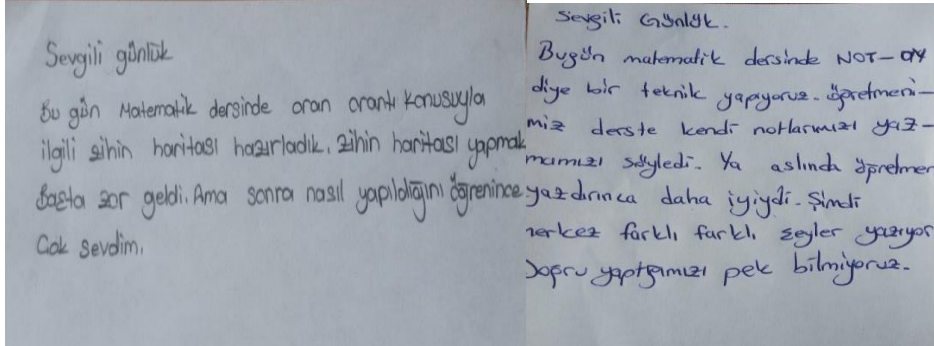 Sevgili günlük
Bu gün Matematik dersinde oran orantı konusuyla
ilgili zihin haritası hazırladık. Zihin haritası yapmak
Başta zor geldi. Ama sonra nasıl yapıldığını öğrenince
Çok sevdim.
Sevgili Günlük.
Bugün matematik dersinde NOT-AY
diye bir teknik yapıyoruz. öğretmeni-
miz derste kendi notlarımızı yaz-
mamızı söyledi. Ya aslında öğretmen
yazdırınca daha iyiydi. Şimdi
herkez farklı farklı şeyler yazıyor
Doğru yaptığımızı pek bilmiyoruz.